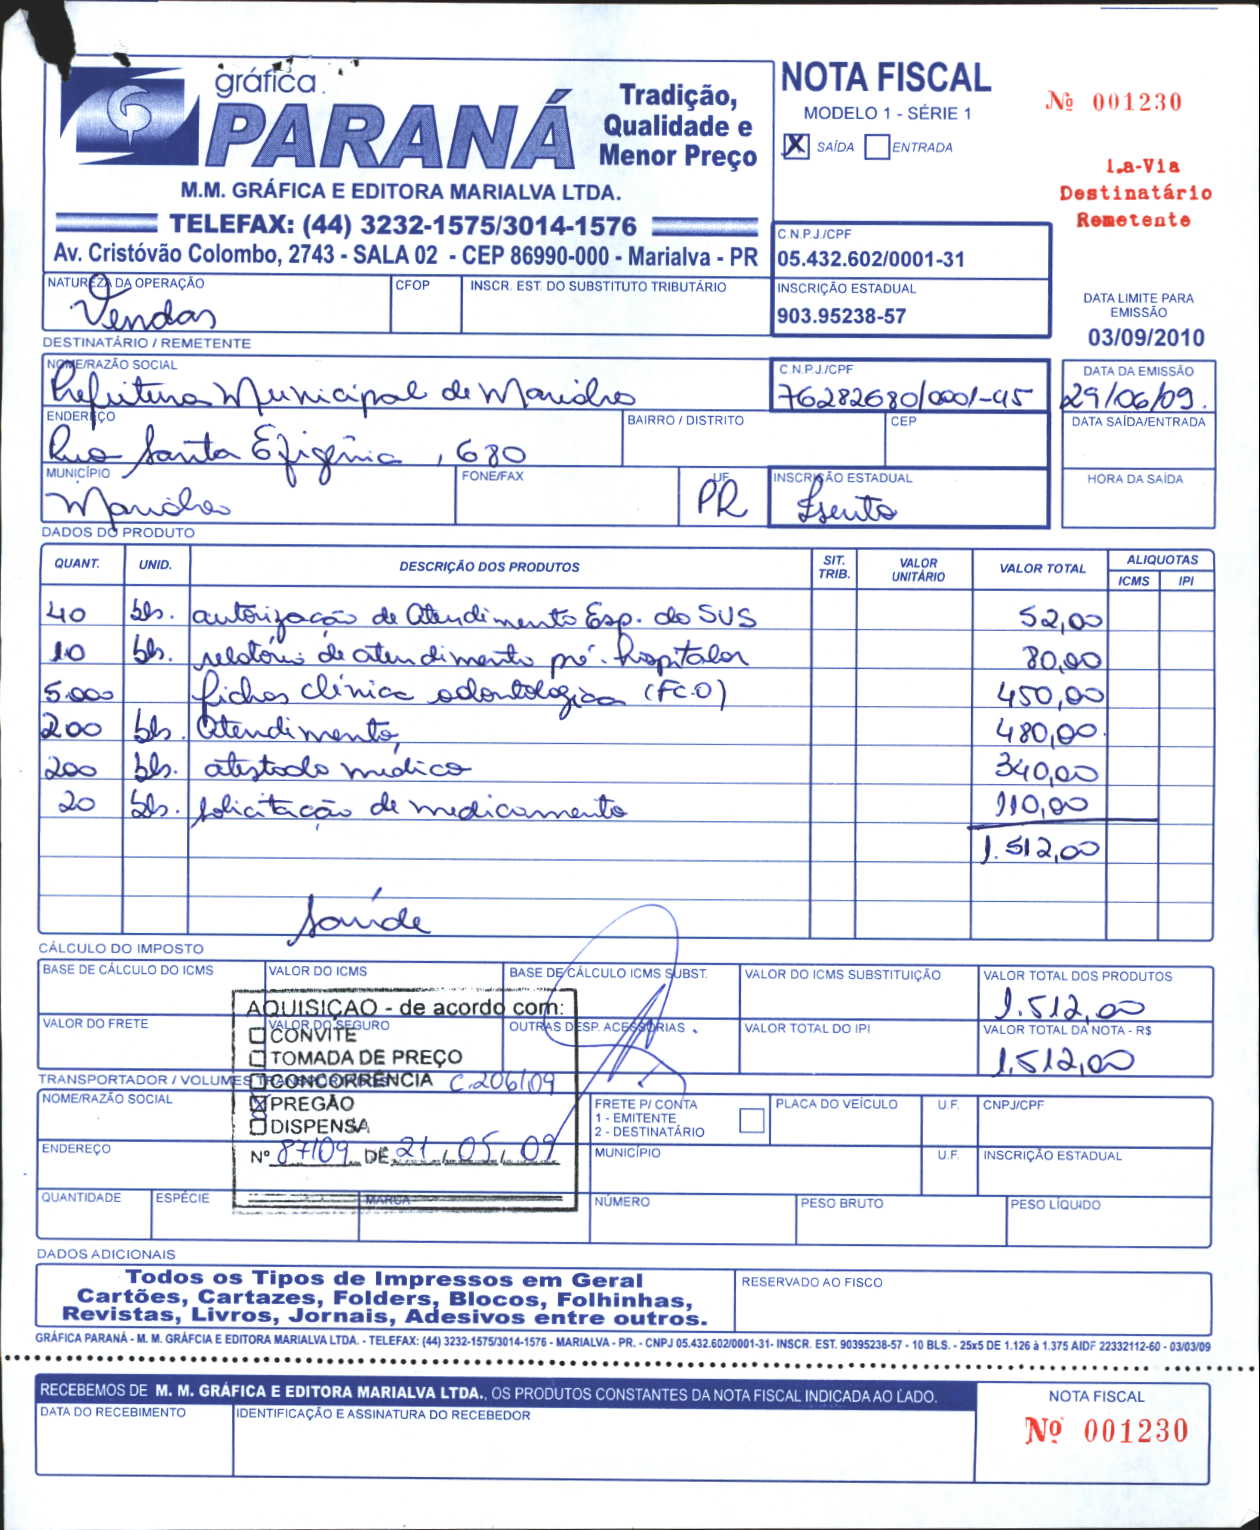 gráfica
PARANÁ
Tradição,
Qualidade e
Menor Preço
M.M. GRÁFICA E EDITORA MARIALVA LTDA.
TELEFAX: (44) 3232-1575/3014-1576
Av. Cristóvão Colombo, 2743 - SALA 02 - CEP 86990-000 - Marialva - PR
NOTA FISCAL
MODELO 1 - SÉRIE 1
X SAÍDA ENTRADA
Nº 001230
1.a-Via
Destinatário
Remetente
C.N.P.J./CPF
05.432.602/0001-31
INSCRIÇÃO ESTADUAL
903.95238-57
DATA LIMITE PARA
EMISSÃO
03/09/2010
NATUREZA DA OPERAÇÃO CFOP INSCR. EST. DO SUBSTITUTO TRIBUTÁRIO
Vendas
DESTINATÁRIO / REMETENTE
NOME/RAZÃO SOCIAL C.N.P.J./CPF DATA DA EMISSÃO
Prefeitura Municipal de 76282680/0001-45 29/06/09.
ENDEREÇO BAIRRO / DISTRITO CEP DATA SAÍDA/ENTRADA
Rua Santa Efigênia, 680
MUNICÍPIO FONE/FAX UF INSCRIÇÃO ESTADUAL HORA DA SAÍDA
PR Isento
DADOS DO PRODUTO
QUANT. UNID. DESCRIÇÃO DOS PRODUTOS SIT. TRIB. VALOR UNITÁRIO VALOR TOTAL ALIQUOTAS ICMS IPI
40 bls. autorização de Atendimento Esp. do SUS 52,00
10 bls. relatório de atendimento pré-hospitalar 80,00
5.000 fichas clínica odontologica (FC.O) 450,00
200 bls. Atendimento, 480,00
200 bls. atestado médico 340,00
20 bls. solicitação de medicamento 110,00
1.512,00
Saúde
CÁLCULO DO IMPOSTO
BASE DE CÁLCULO DO ICMS VALOR DO ICMS BASE DE CÁLCULO ICMS SUBST. VALOR DO ICMS SUBSTITUIÇÃO VALOR TOTAL DOS PRODUTOS
1.512,00
VALOR DO FRETE VALOR DO SEGURO OUTRAS DESP. ACESSÓRIAS VALOR TOTAL DO IPI VALOR TOTAL DA NOTA - R$
1.512,00
AQUISIÇAO - de acordo com:
CONVITE
TOMADA DE PREÇO
CONCORRÊNCIA C.206/09
X PREGÃO
DISPENSA
Nº 87/09 DE 21/05/09
TRANSPORTADOR / VOLUMES
NOME/RAZÃO SOCIAL FRETE P/ CONTA PLACA DO VEÍCULO U.F. CNPJ/CPF
1 - EMITENTE
2 - DESTINATÁRIO
ENDEREÇO MUNICÍPIO U.F. INSCRIÇÃO ESTADUAL
QUANTIDADE ESPÉCIE MARCA NÚMERO PESO BRUTO PESO LÍQUIDO
DADOS ADICIONAIS
Todos os Tipos de Impressos em Geral
Cartões, Cartazes, Folders, Blocos, Folhinhas,
Revistas, Livros, Jornais, Adesivos entre outros.
RESERVADO AO FISCO
GRÁFICA PARANÁ - M. M. GRÁFCIA E EDITORA MARIALVA LTDA. - TELEFAX: (44) 3232-1575/3014-1576 - MARIALVA - PR. - CNPJ 05.432.602/0001-31- INSCR. EST. 90395238-57 - 10 BLS. - 25x5 DE 1.126 à 1.375 AIDF 22332112-60 - 03/03/09
RECEBEMOS DE M. M. GRÁFICA E EDITORA MARIALVA LTDA., OS PRODUTOS CONSTANTES DA NOTA FISCAL INDICADA AO LADO.
DATA DO RECEBIMENTO IDENTIFICAÇÃO E ASSINATURA DO RECEBEDOR
NOTA FISCAL
Nº 001230